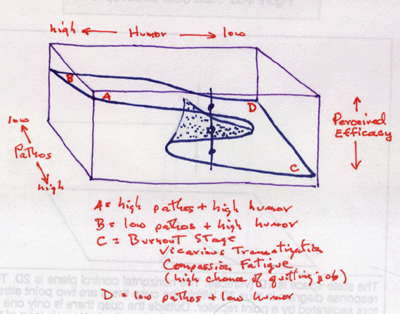 high ← Humor → low
B
A
D
low
Pathos
high
Perceived
Efficacy
C
A = high pathos + high humor
B = low pathos + high humor
C = Burnout Stage
Vicarious Tramatization
Compassion Fatigue
(high chance of quitting job)
D = low pathos + low humor
control plane is 2D. T
response
are two point
tors separated by a point repellor. Outside the cusp there is only one